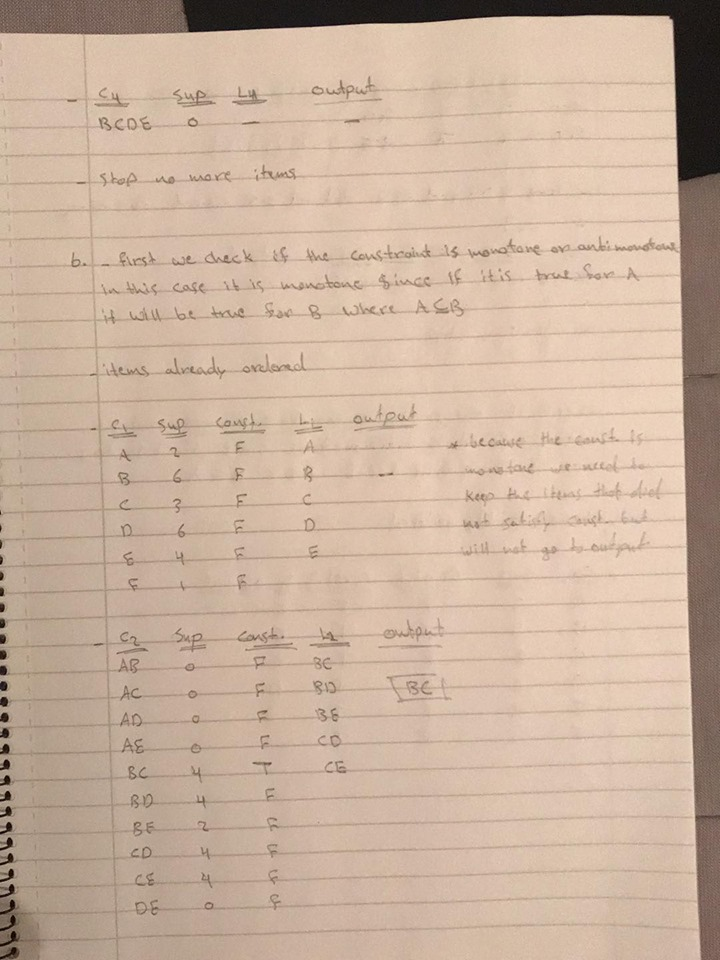 - C4 Sup L4 output
BCDE 0 — —
- Stop no more items
b. - First we check if the constraint is monotone or antimonotone
in this case it is monotone since If it is true for A
it will be true for B where A⊆B
- items already ordered
- C1 Sup Const. L1 output
A 2 F A * because the const is
B 6 F B -- monotone we need to
C 3 F C Keep the items that did
D 6 F D not satisfy const. but
E 4 F E will not go to output
F 1 F
- C2 Sup Const. L2 output
AB 0 F BC
AC 0 F BD BC
AD 0 F BE
AE 0 F CD
BC 4 T CE
BD 4 F
BE 2 F
CD 4 F
CE 4 F
DE 0 F